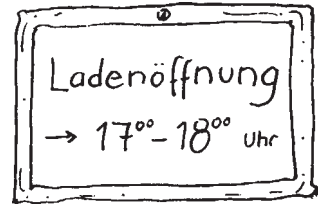 Ladenöffnung
→ 17⁰⁰-18⁰⁰ Uhr